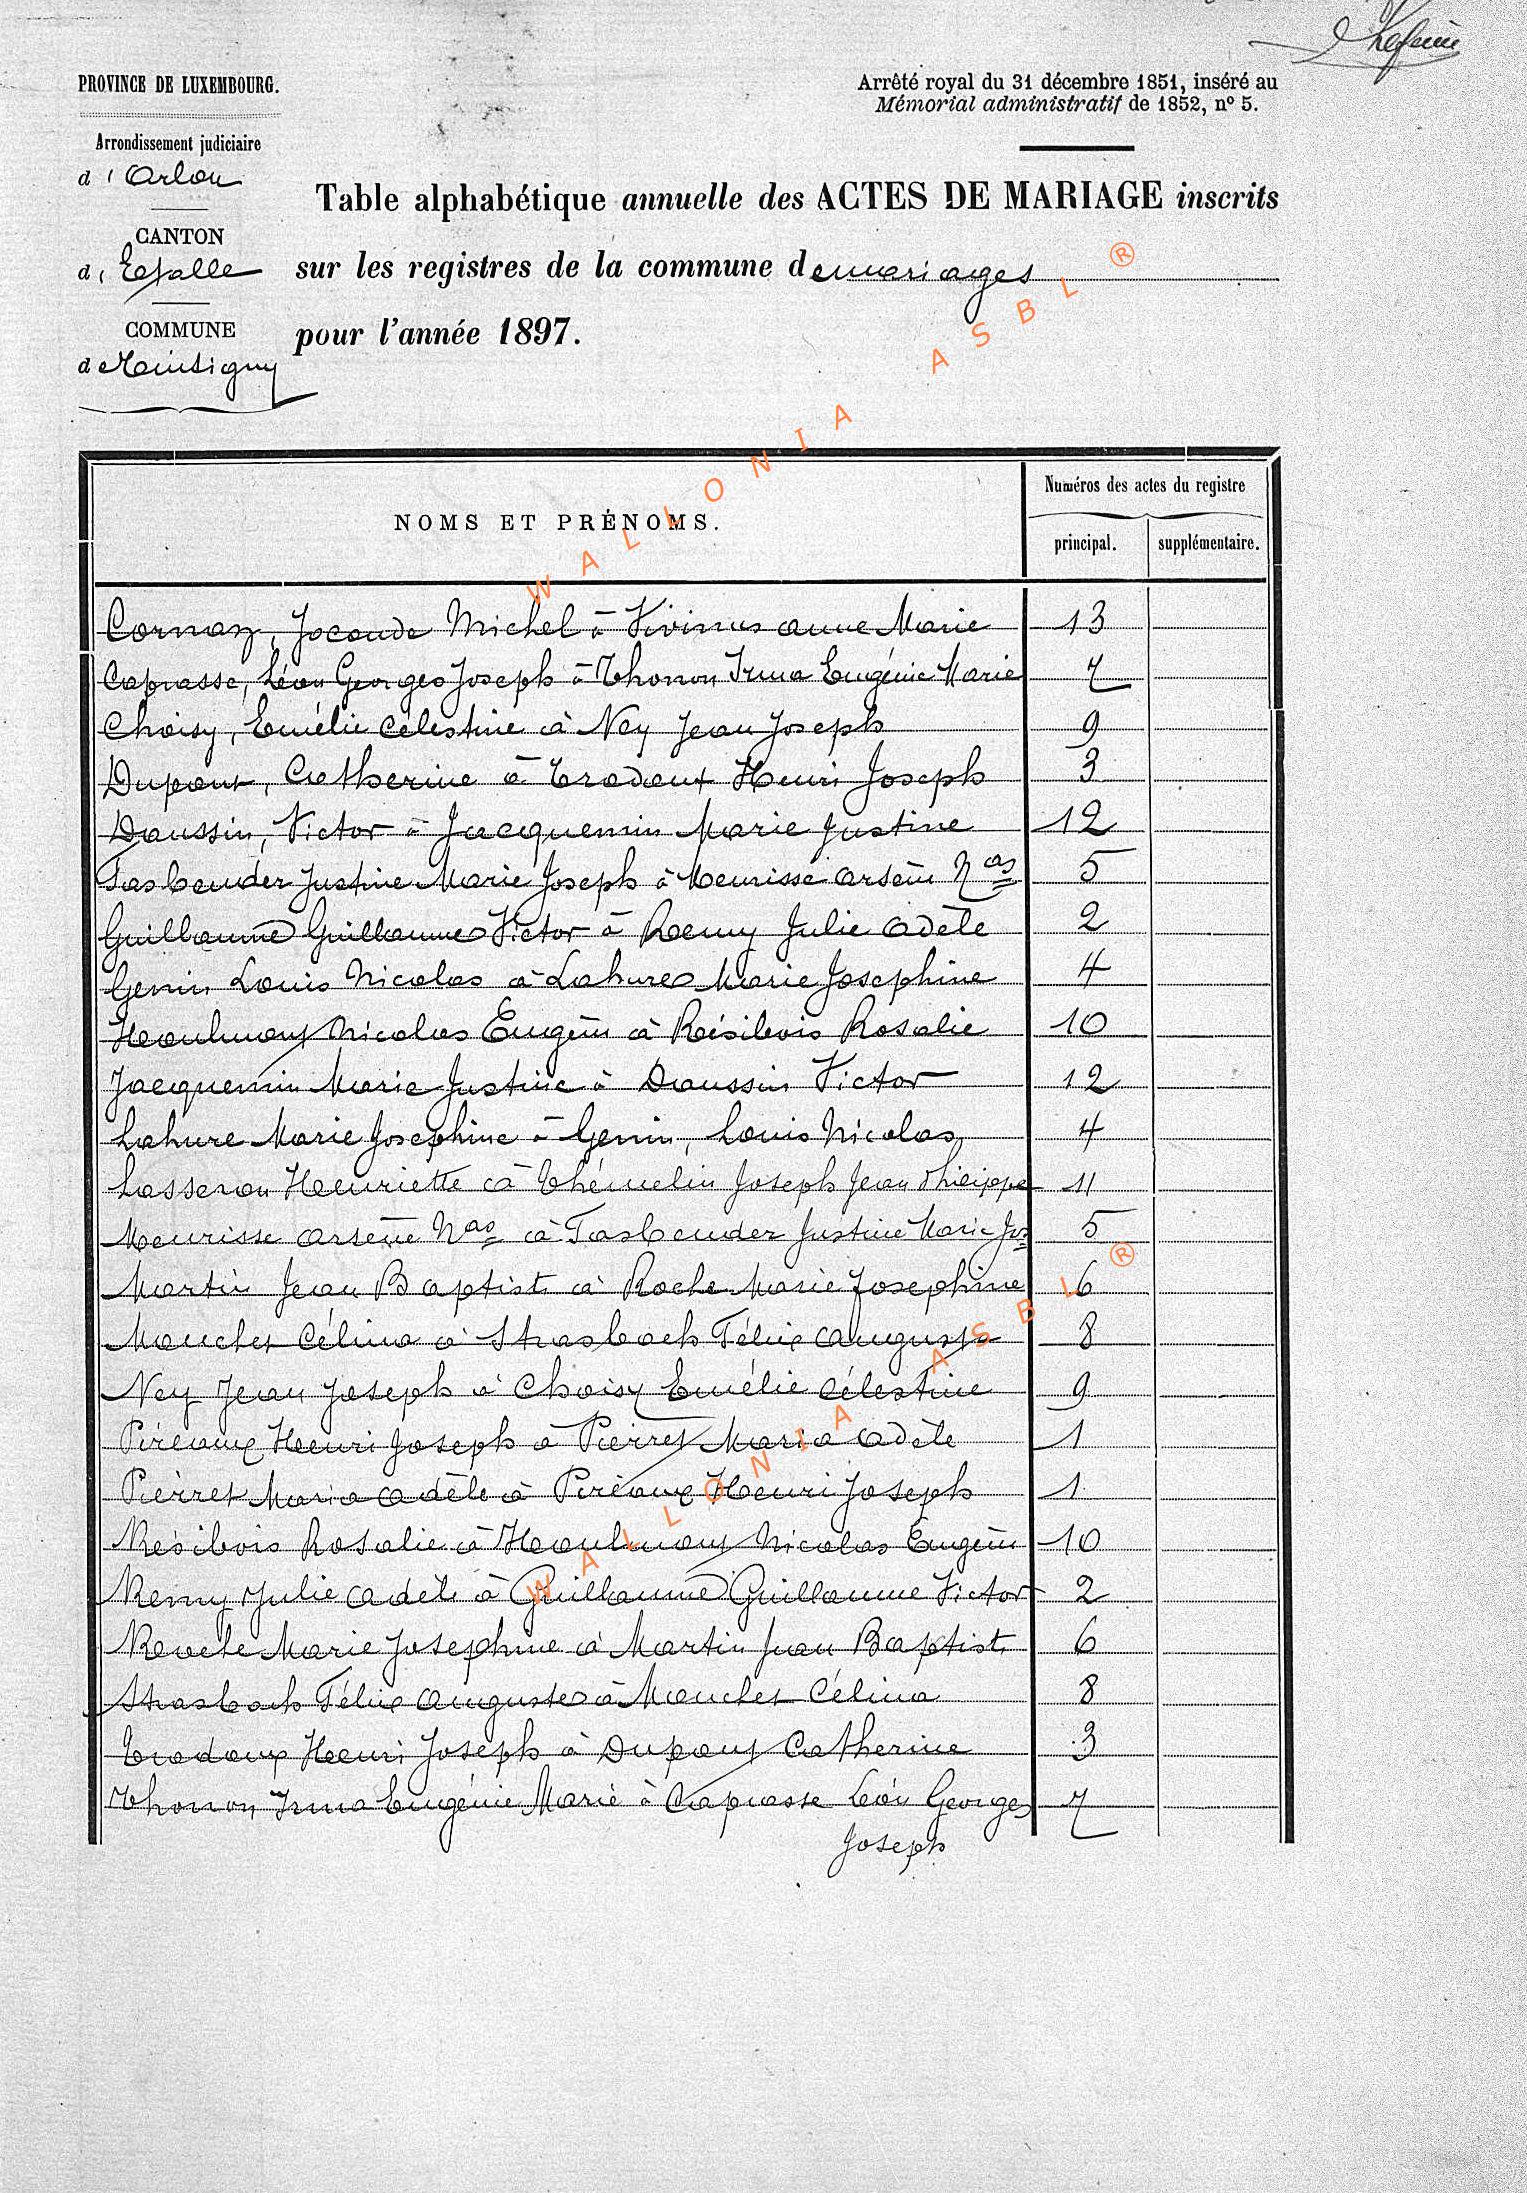 PROVINCE DE LUXEMBOURG.
Arrêté royal du 31 décembre 1851, inséré au
Mémorial administratif de 1852, nº 5.
Arrondissement judiciaire
d'Arlon
Table alphabétique annuelle des ACTES DE MARIAGE inscrits
CANTON
d'Etalle
sur les registres de la commune de mariages
COMMUNE
pour l'année 1897.
de
WALLONIA ASBL ®
NOMS ET PRÉNOMS.
Numéros des actes du registre
principal.
supplémentaire.
Joconde Michel à Vivinus Anne Marie 13
Caprasse, Léon Georges Joseph à Thonon Irma Eugénie Marie 7
Choisy, Emélie Célestine à Ney Jean Joseph 9
Dupont, Catherine à Trodoux Henri Joseph 3
Daussin, Victor à Jacquemin Marie Justine 12
Fasbender Justine Marie Joseph à Meurisse Arsène Nas 5
Guillaume Guillaume Victor à Remy Julie Adèle 2
Genin Louis Nicolas à Lahure Marie Josephine 4
Haulmont Nicolas Eugène à Résibois Rosalie 10
Jacquemin Marie Justine à Daussin Victor 12
Lahure Marie Josephine à Genin, Louis Nicolas 4
Lasseron Henriette à Thémelin Joseph Jean Philippe 11
Meurisse Arsène Nas à Fasbender Justine Marie Jos 5
Martin Jean Baptiste à Roche Marie Josephine 6
Mouchet Célina à Strasbach Félix Auguste 8
Ney Jean Joseph à Choisy Emélie Célestine 9
Piréaux Henri Joseph à Pierret Maria Adèle 1
Pierret Maria Adèle à Piréaux Henri Joseph 1
Résibois Rosalie à Haulmont Nicolas Eugène 10
Remy Julie Adèle à Guillaume Guillaume Victor 2
Marie Josephine à Martin Jean Baptiste 6
Strasbach Félix Auguste à Mouchet Célina 8
Trodoux Henri Joseph à Dupont Catherine 3
Thonon Irma Eugénie Marie à Caprasse Léon Georges 7
Joseph
WALLONIA ASBL ®